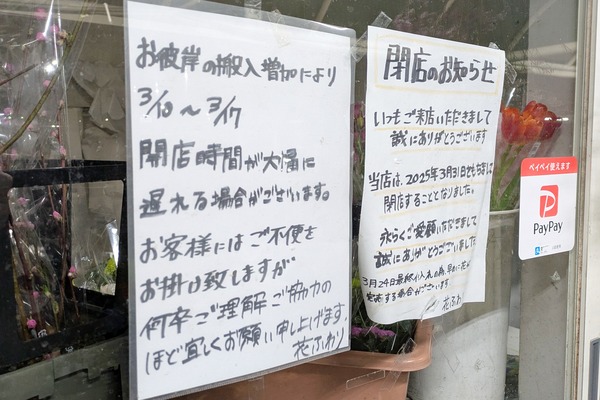 お彼岸の搬入増加により
3/10～3/17
開店時間が大幅に
遅れる場合がございます。
お客様にはご不便を
お掛け致しますが
何卒ご理解ご協力の
ほど宜しくお願い申し上げます。
花ふわり
閉店のお知らせ
いつもご来店いただきまして
誠にありがとうございます
当店は、2025年3月31日をもちまして
閉店することとなりました。
永らくご愛顧いただきまして
誠にありがとうございました
3月24日最終仕入れの為、早めに花が
完売する場合がございます
花ふわり
ペイペイ使えます
PayPay